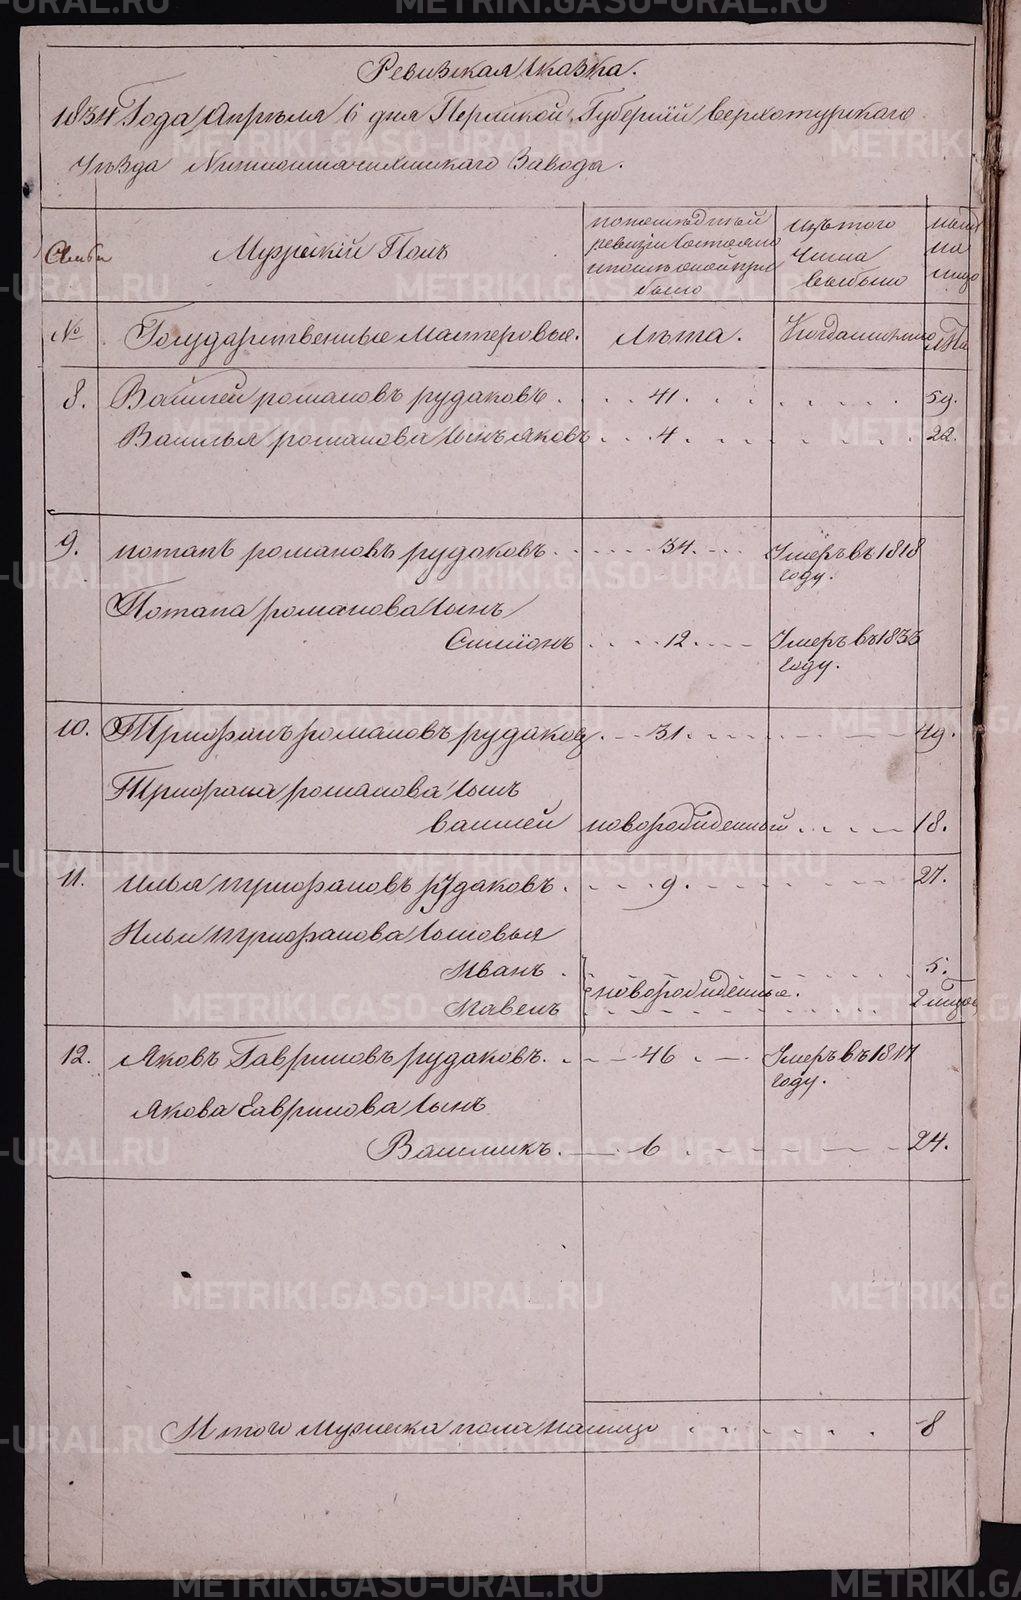 Ревизская Сказка.
1834 Года Апреля 6 дня Пермской Губернiи верхотурскаго
Уезда Нижнотагилскаго Завода.
Семьи
Мужескiй Полъ
По последней
ревизiи Состояло
и после оной при
было
Изъ того
Числа
Выбыло
ныне
на
лицо
№
Государственные Мастеровые.
Лета.
Когда именно
Лета
8. Василей романовъ рудаковъ 41. 59.
Василья романова Сынъ яковъ 4. 22.
9. потапъ романовъ рудаковъ 34. Умеръ въ 1818
году.
Потапа романова Сынъ
Симионъ 12. Умеръ въ 1833
году.
10. Трифанъ романовъ рудаков 31. 49.
Трифана романова Сынъ
василей новорожденный 18.
11. Илья трифановъ рудаковъ. 9. 27.
Ильи трифанова Сыновья
Иванъ 5.
новорожденные.
Павелъ 2
12. Яковъ Гавриловъ рудаковъ. 46. Умеръ въ 1817
году.
Якова Гаврилова Сынъ
Василикъ. 6 24.
Итого мужеска пола налицо 8
METRIKI.GASO-URAL.RU